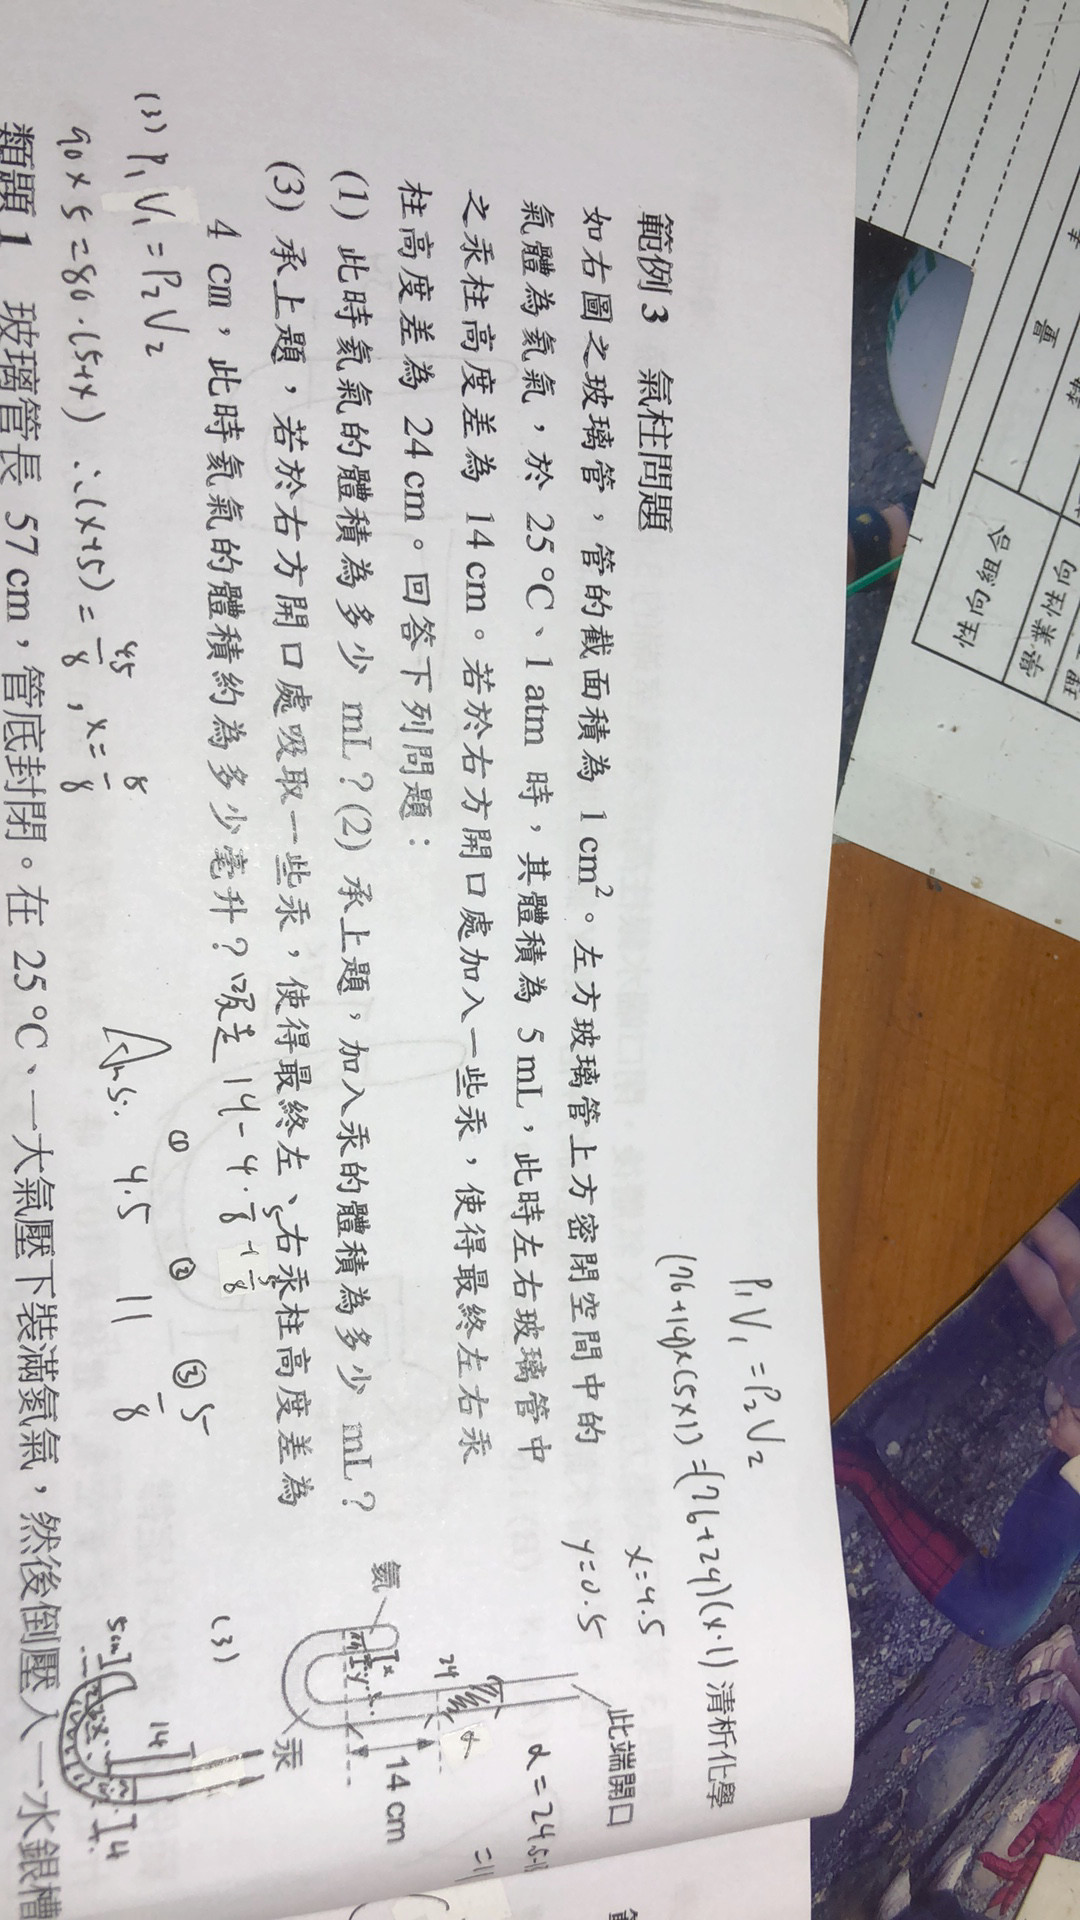 P₁V₁ = P₂V₂
(76+14)×(5×1) = (76+24)(x·1)
清析化學
x=4.5
y=0.5
範例 3 氣柱問題
如右圖之玻璃管，管的截面積為 1 cm²。左方玻璃管上方密閉空間中的
氣體為氦氣，於 25 °C、1 atm 時，其體積為 5 mL，此時左右玻璃管中
之汞柱高度差為 14 cm。若於右方開口處加入一些汞，使得最終左右汞
柱高度差為 24 cm。回答下列問題：
(1) 此時氦氣的體積為多少 mL？(2) 承上題，加入汞的體積為多少 mL？
(3) 承上題，若於右方開口處吸取一些汞，使得最終左、右汞柱高度差為
4 cm，此時氦氣的體積約為多少毫升？
此端開口
氦
汞
14 cm
24
(3)
14
5cm
(3) P₁V₁ = P₂V₂
90×5=80·(5+x) ∴(x+5)=45/8
Ans: ① 4.5 ② 11
類題 1 玻璃管長 57 cm，管底封閉。在 25 °C、一大氣壓下裝滿氮氣，然後倒壓入一水銀槽